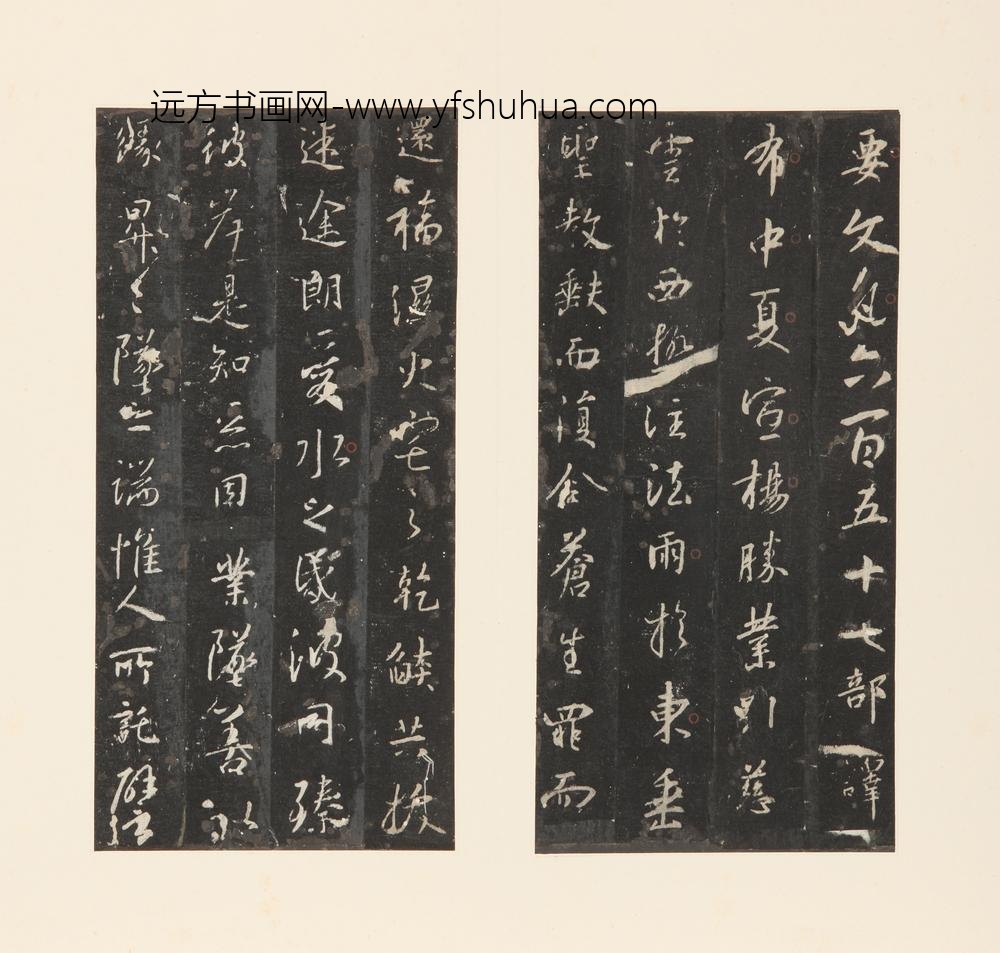 远方书画网-www.yfshuhua.com
要文凡六百五十七部譯
布中夏宣楊勝業引慈
雲於西極注法雨於東垂
聖教缺而復全蒼生罪而
還福濕火宅之乾焰共拔
迷途朗愛水之昏波同臻
彼岸是知惡因業墜善以
緣昇昇墜之端惟人所託譬